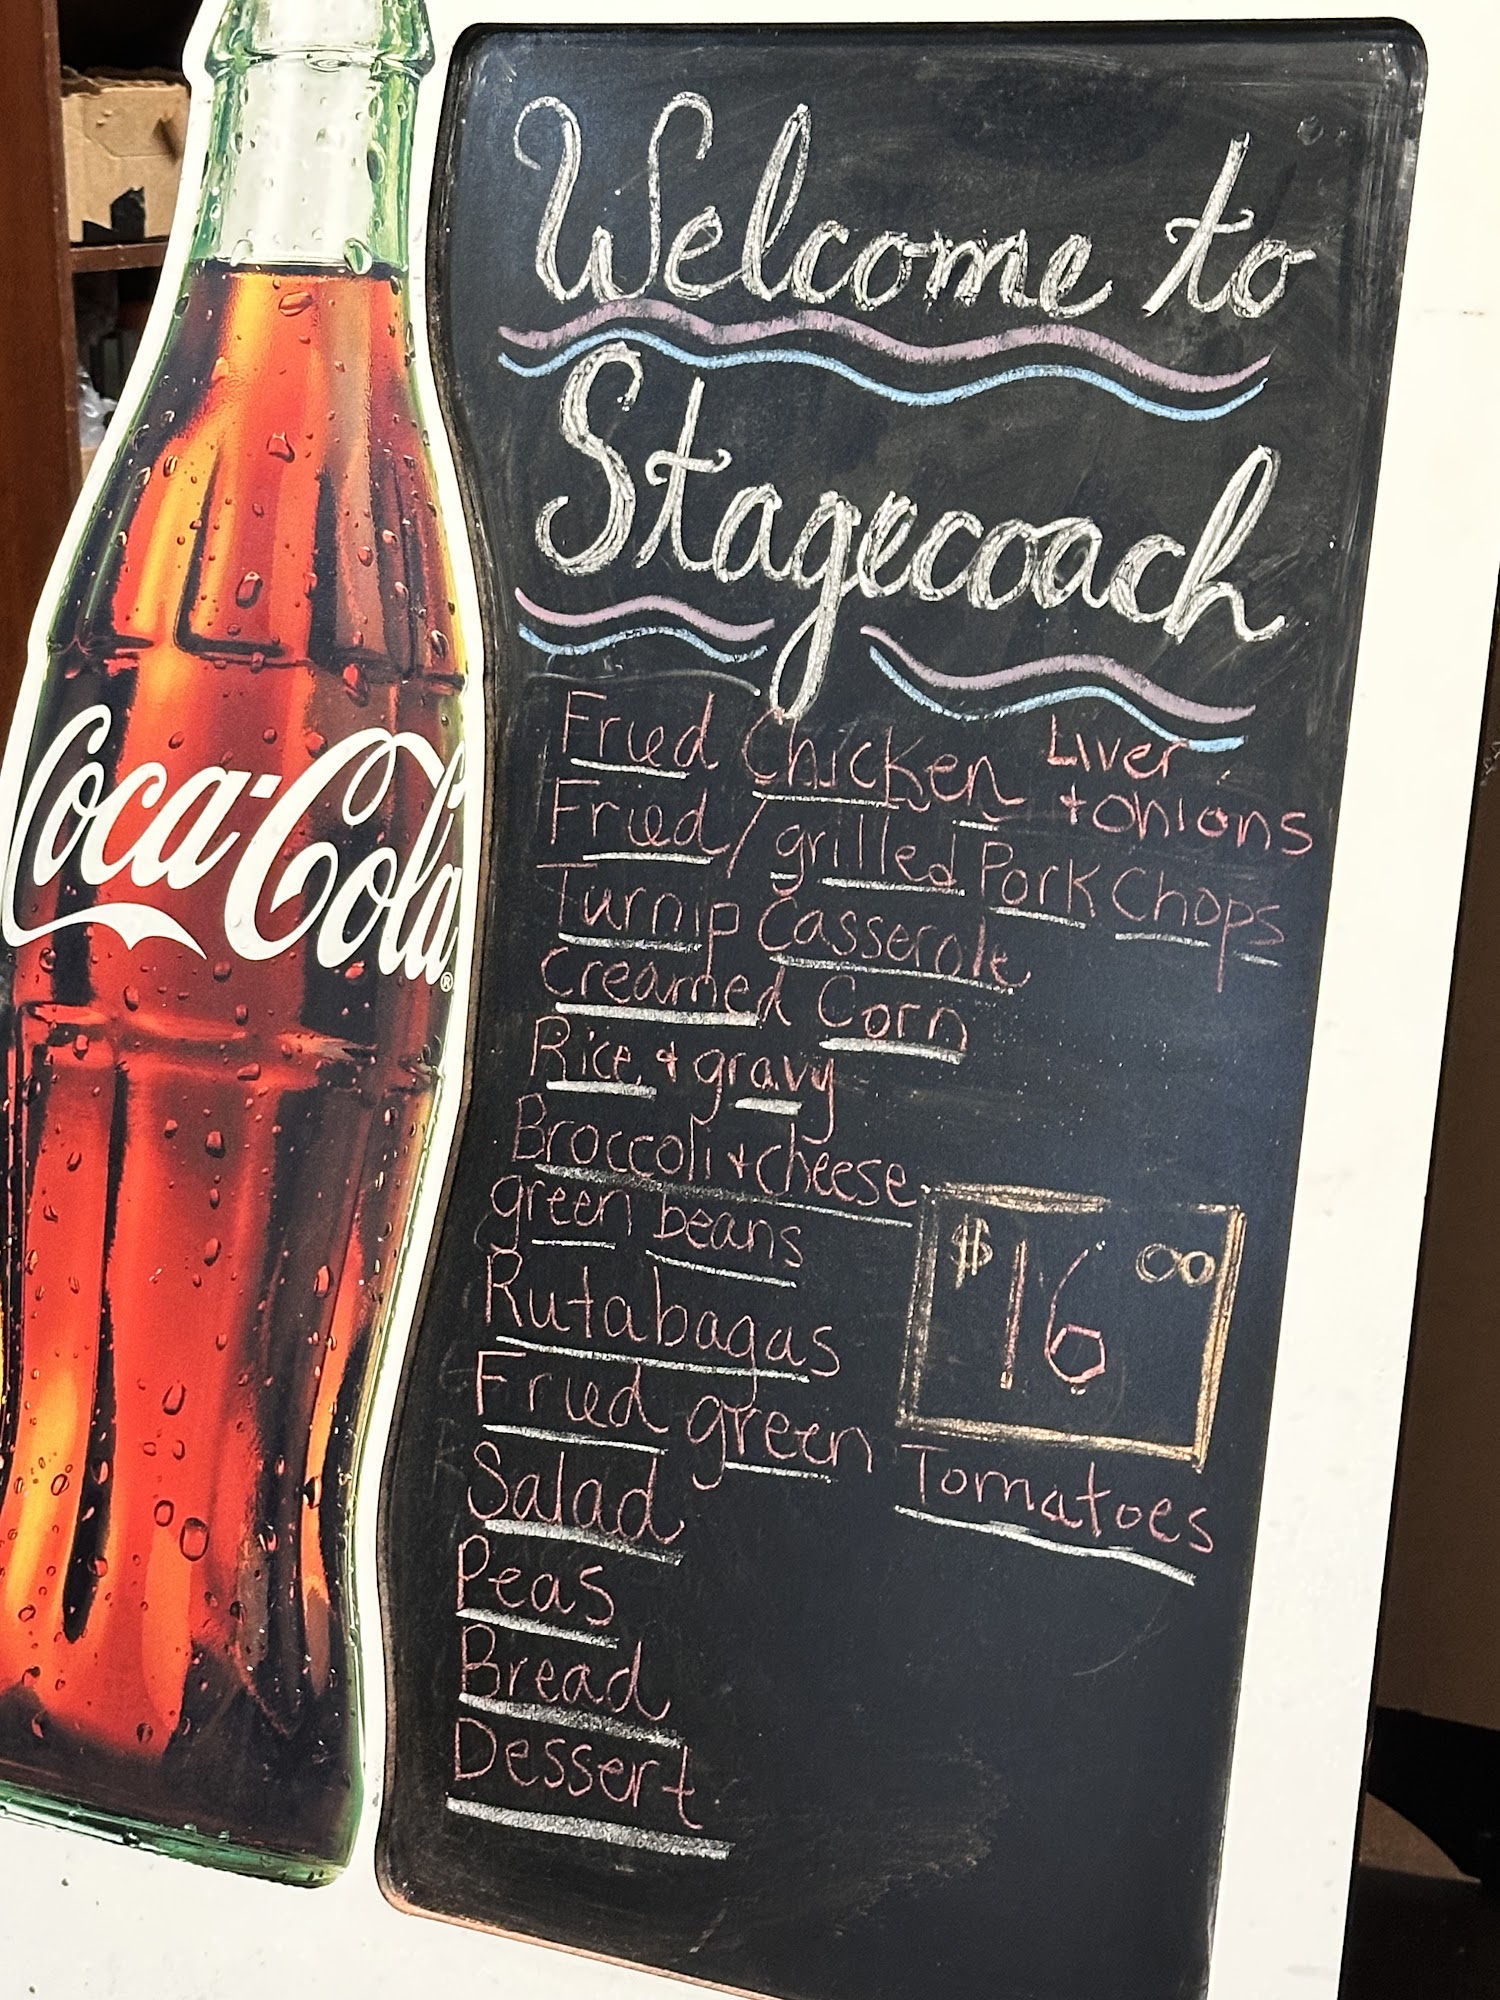 Welcome to
Stagecoach
Fried Chicken Liver + onions
Fried / grilled Pork Chops
Turnip Casserole
Creamed Corn
Rice + gravy
Broccoli + cheese
green beans
Rutabagas
Fried green Tomatoes
Salad
Peas
Bread
Dessert
$16 00
Coca-Cola®